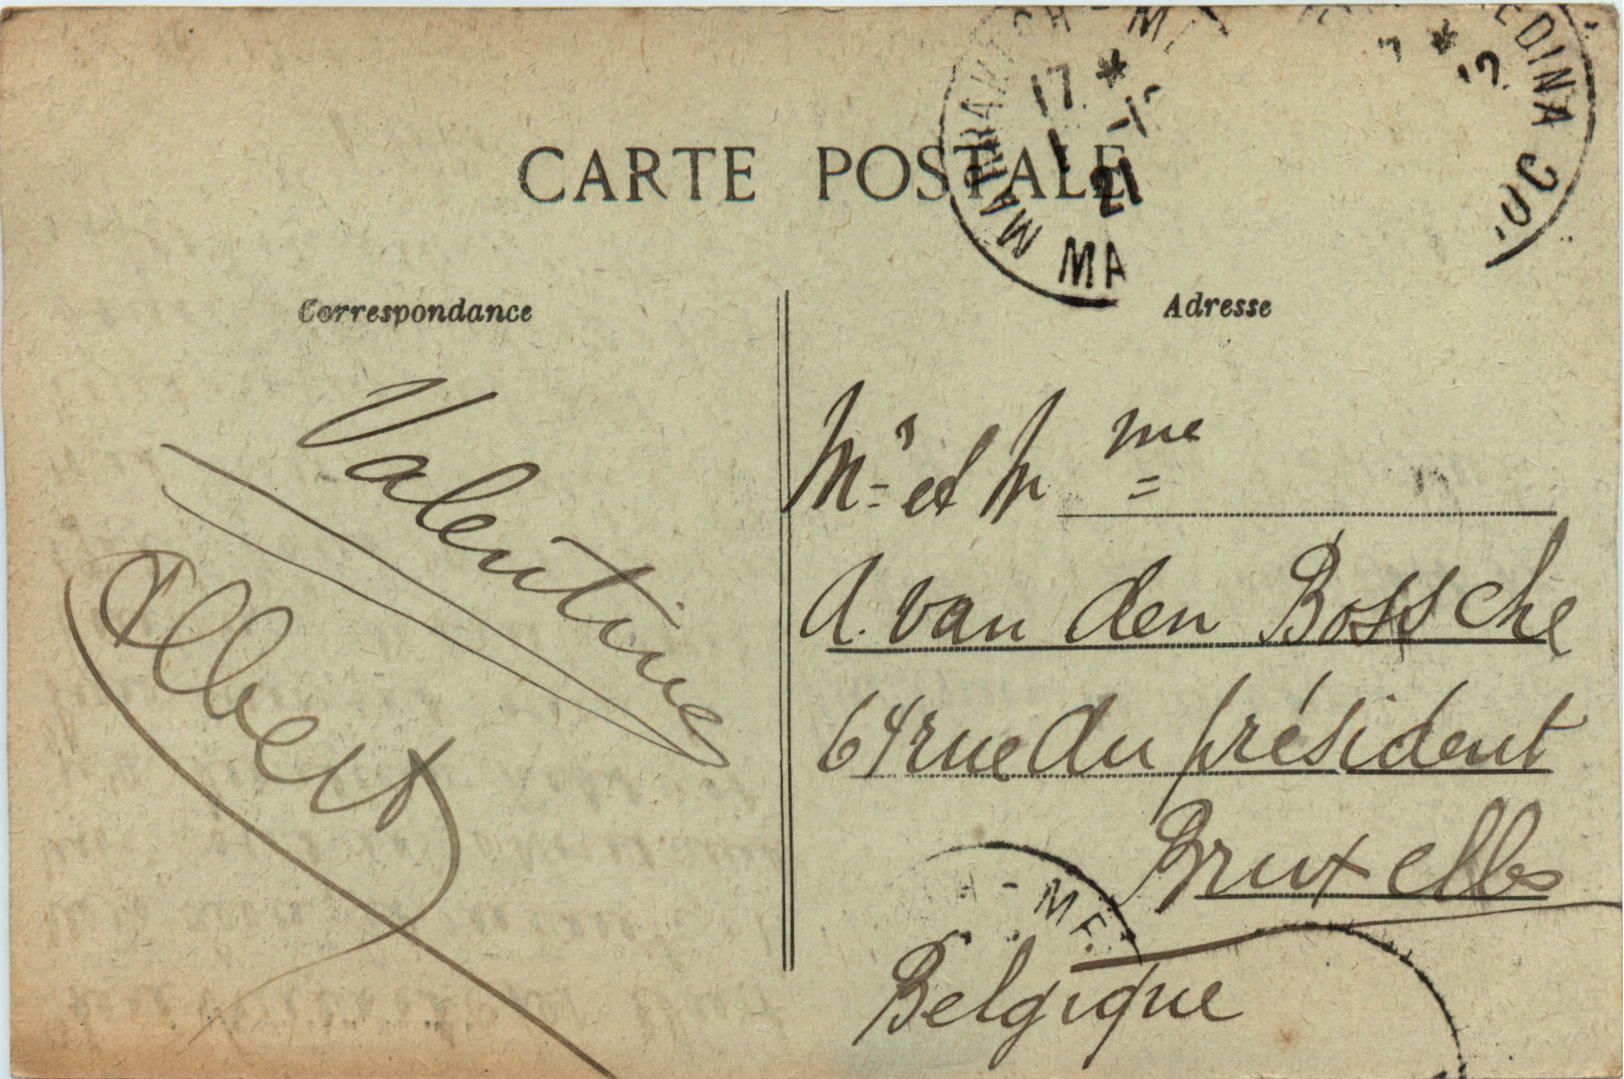 CARTE POSTALE
MARRAKECH - ME
17 *
21
MA
EDINA
OC
Correspondance
Adresse
Valentine
Albert
Mr et Mme
A. van den Bossche
64 rue du président
Bruxelles
H - ME
Belgique